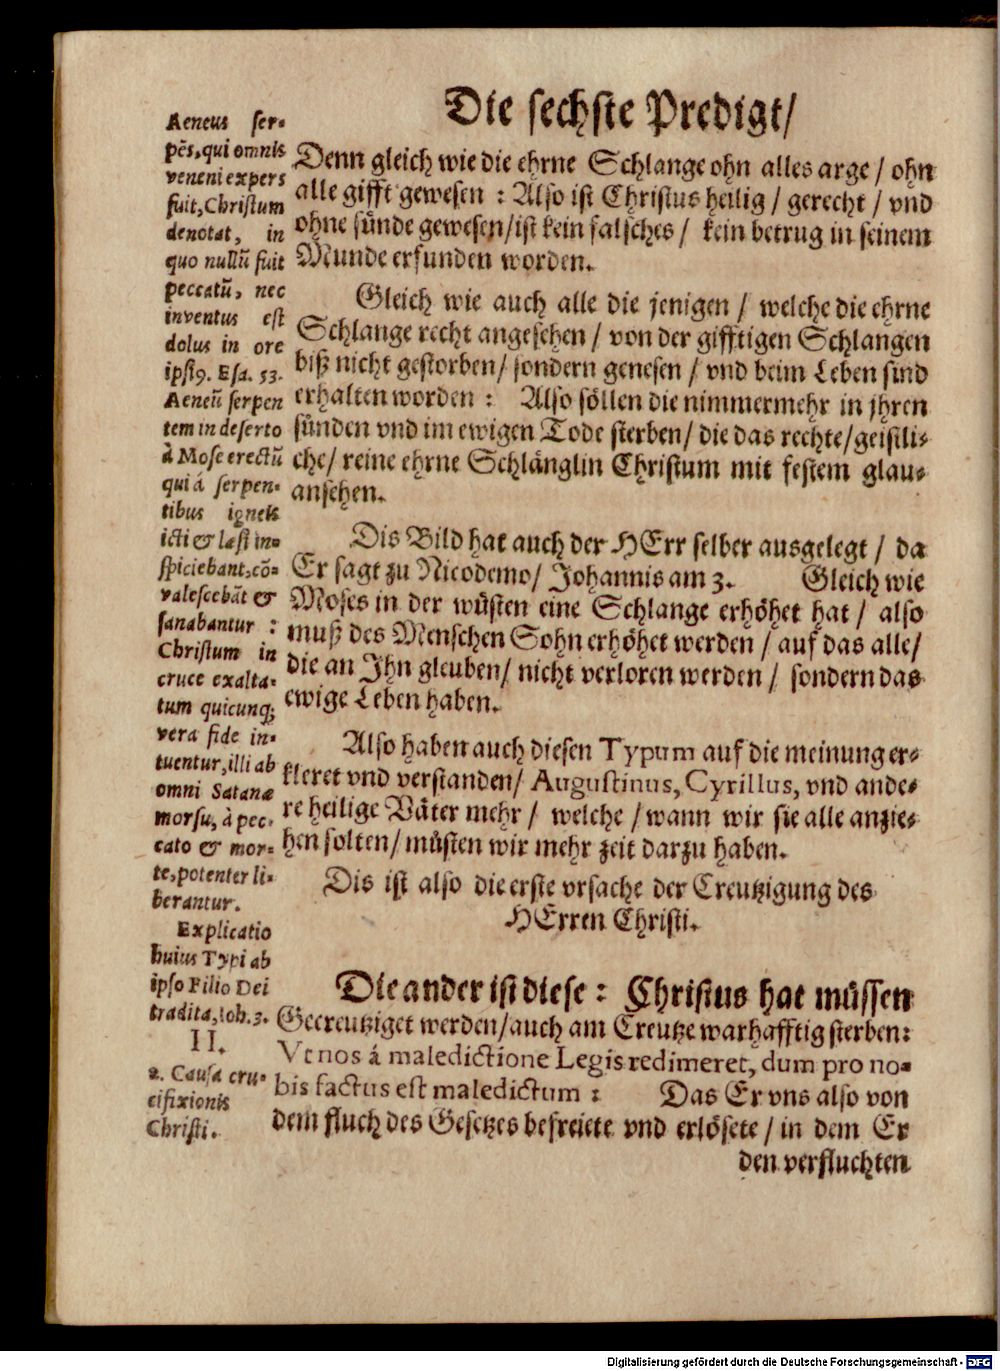 Die sechste Predigt/
Denn gleich wie die ehrne Schlange ohn alles arge / ohn
alle gifft gewesen : Also ist Christus heilig / gerecht / vnd
ohne sünde gewesen/ist kein falsches / kein betrug in seinem
Munde erfunden worden.
Gleich wie auch alle die jenigen / welche die ehrne
Schlange recht angesehen / von der gifftigen Schlangen
biß nicht gestorben/ sondern genesen / vnd beim Leben sind
erhalten worden : Also söllen die nimmermehr in jhren
sünden vnd im ewigen Tode sterben/ die das rechte/geistli-
che/ reine ehrne Schlänglin Christum mit festem glau-
ansehen.
Dis Bild hat auch der HErr selber ausgelegt / da
Er sagt zu Nicodemo/ Johannis am 3. Gleich wie
Moses in der wüsten eine Schlange erhöhet hat / also
muß des Menschen Sohn erhöhet werden / auf das alle/
die an Jhn gleuben/ nicht verloren werden / sondern das
ewige Leben haben.
Also haben auch diesen Typum auf die meinung er-
kleret vnd verstanden/ Augustinus, Cyrillus, vnd ande-
re heilige Väter mehr / welche / wann wir sie alle anzie-
hen solten/ müsten wir mehr zeit darzu haben.
Dis ist also die erste vrsache der Creutzigung des
HErren Christi.
Die ander ist diese : Christus hat müssen
Gecreutziget werden/auch am Creutze warhafftig sterben:
Vt nos á maledictione Legis redimeret, dum pro no-
bis factus est maledictum : Das Er vns also von
dem fluch des Gesetzes befreiete vnd erlösete / in dem Er
den verfluchten
Aeneus ser-
pēs, qui omnis
veneni expers
fuit, Christum
denotat, in
quo nullū fuit
peccatū, nec
inventus est
dolus in ore
ipsiꝰ. Esa. 53.
Aeneū serpen
tem in deserto
à Mose erectū
qui á serpen-
tibus igneis
icti & læsi in-
spiciebant, cō-
valescebāt &
sanabantur :
Christum in
cruce exalta-
tum quicunq;
vera fide in-
tuentur, illi ab
omni Satanæ
morsu, à pec-
cato & mor-
te, potenter li-
berantur.
Explicatio
huius Typi ab
ipso Filio Dei
tradita, Ioh. 3.
II.
2. Causa cru-
cifixionis
Christi.
Digitalisierung gefördert durch die Deutsche Forschungsgemeinschaft - DFG